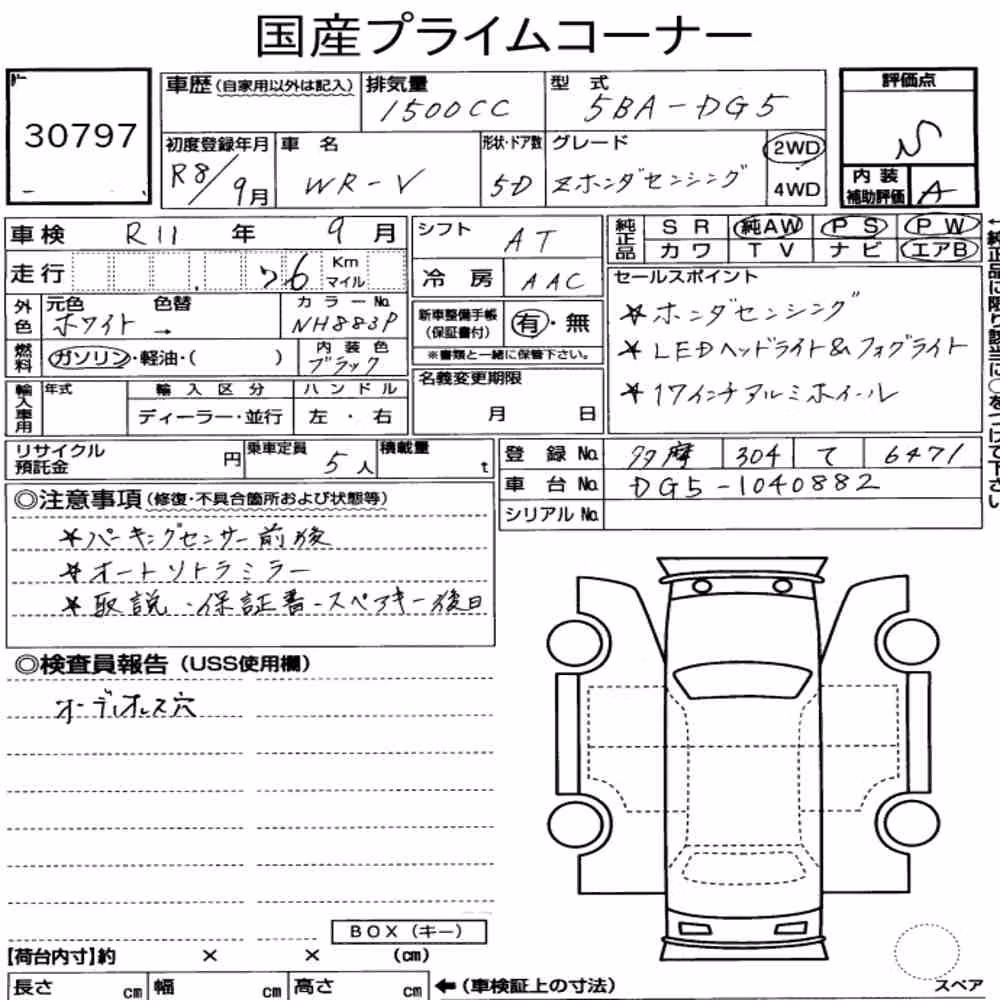 国産プライムコーナー
30797
車歴(自家用以外は記入) 排気量 1500CC 型式 5BA-DG5
評価点 S
初度登録年月 R8/9月 車名 WR-V 形状・ドア数 5D グレード Zホンダセンシング 2WD 4WD
内装補助評価 A
車検 R11年 9月 シフト AT
純正品 SR 純AW PS PW
カワ TV ナビ エアB
走行 76 Km マイル 冷房 AAC
←純正品に限り該当に○をつけて下さい
外色 元色 ホワイト 色替 → カラーNo. NH883P
新車整備手帳(保証書付) 有・無
※書類と一緒に保管下さい。
セールスポイント
☆ホンダセンシング
☆LEDヘッドライト&フォグライト
☆17インチアルミホイール
燃料 ガソリン・軽油・( ) 内装色 ブラック
名義変更期限 月 日
輸入車用 年式 輸入区分 ハンドル
ディーラー・並行 左・右
リサイクル預託金 円 乗車定員 5人 積載量 t
登録No. 多摩 304 て 6471
車台No. DG5-1040882
シリアルNo.
◎注意事項(修復・不具合箇所および状態等)
☆パーキングセンサー前後
☆オートリトラミラー
☆取説・保証書・スペアキー後日
◎検査員報告(USS使用欄)
オーディオレス穴
BOX(キー)
【荷台内寸】約 × × (cm)
長さ cm 幅 cm 高さ cm ←(車検証上の寸法)
スペア